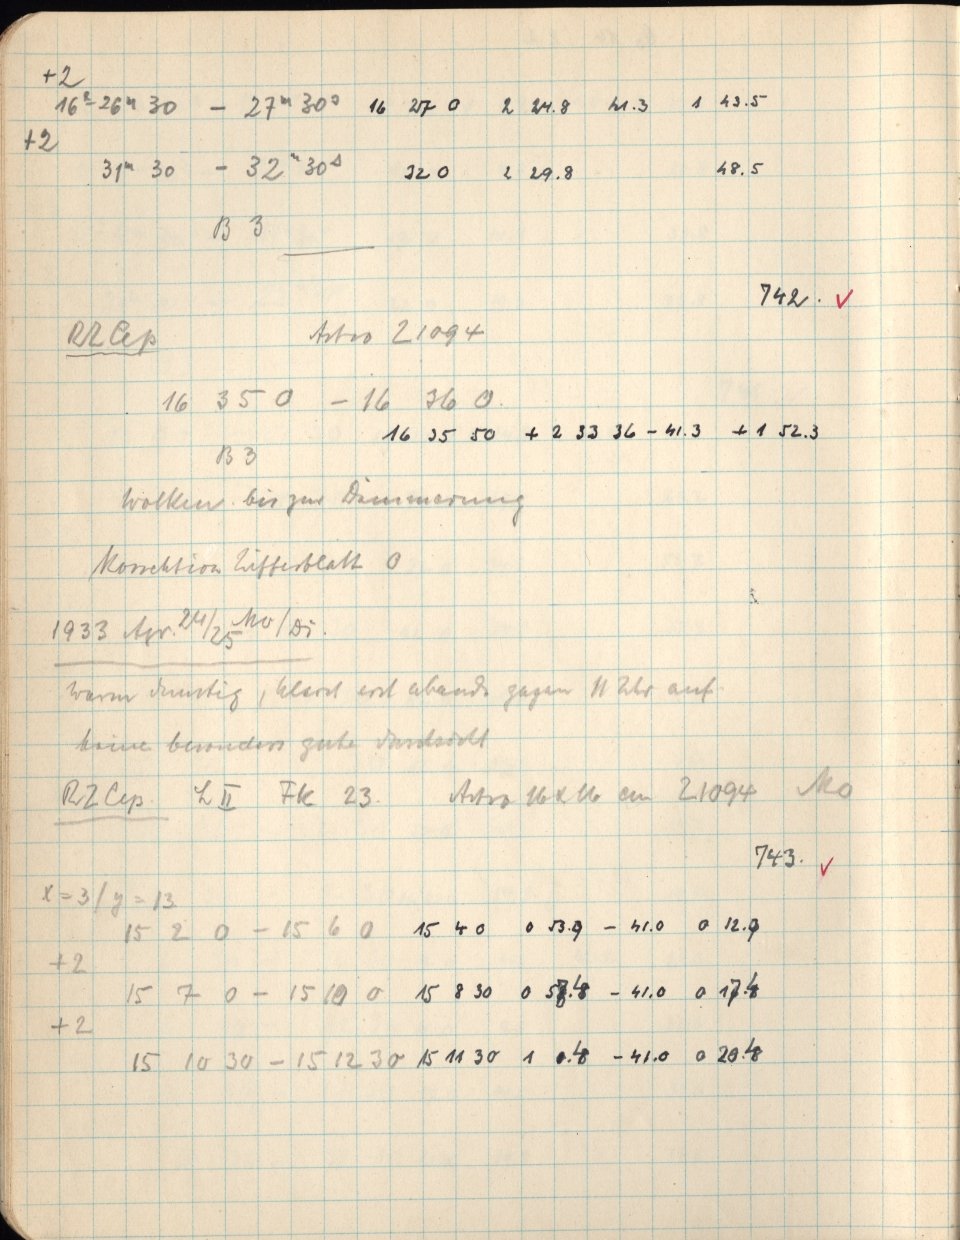 +2
16h 26m 30 - 27m 30s 16 27 0 2 24.8 41.3 1 43.5
+2
31m 30 - 32m 30s 32 0 2 29.8 48.5
B 3
742. ✓
RZ Cep Astro 21094
16 35 0 - 16 36 0
16 35 50 + 2 33 36 - 41.3 + 1 52.3
B 3
Wolken bis zur Dämmerung
Korrektion Zifferblatt 0
1933 Apr. 24/25 Mo/Di.
warm dunstig, klart erst abends gegen 11 Uhr auf
keine besonders gute Durchsicht
RZ Cep. L II FK 23. Astro 16x16 cm 21094 Mo
743. ✓
x = 3 / y = 13
15 2 0 - 15 6 0 15 4 0 0 53.9 - 41.0 0 12.9
+2
15 7 0 - 15 10 0 15 8 30 0 - 41.0 0
+2
15 10 30 - 15 12 30 15 11 30 1 - 41.0 0